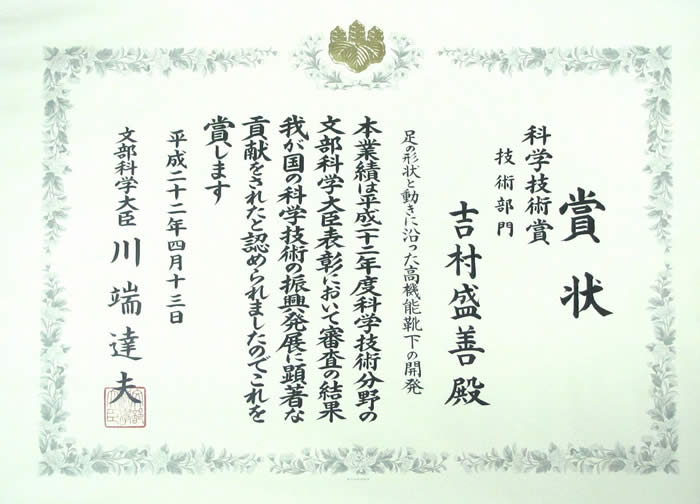 賞状
科学技術賞
技術部門
吉村盛善殿
足の形状と動きに沿った高機能靴下の開発
本業績は平成二十二年度科学技術分野の
文部科学大臣表彰において審査の結果
我が国の科学技術の振興発展に顕著な
貢献をされたと認められましたのでこれを
賞します
平成二十二年四月十三日
文部科学大臣 川端達夫